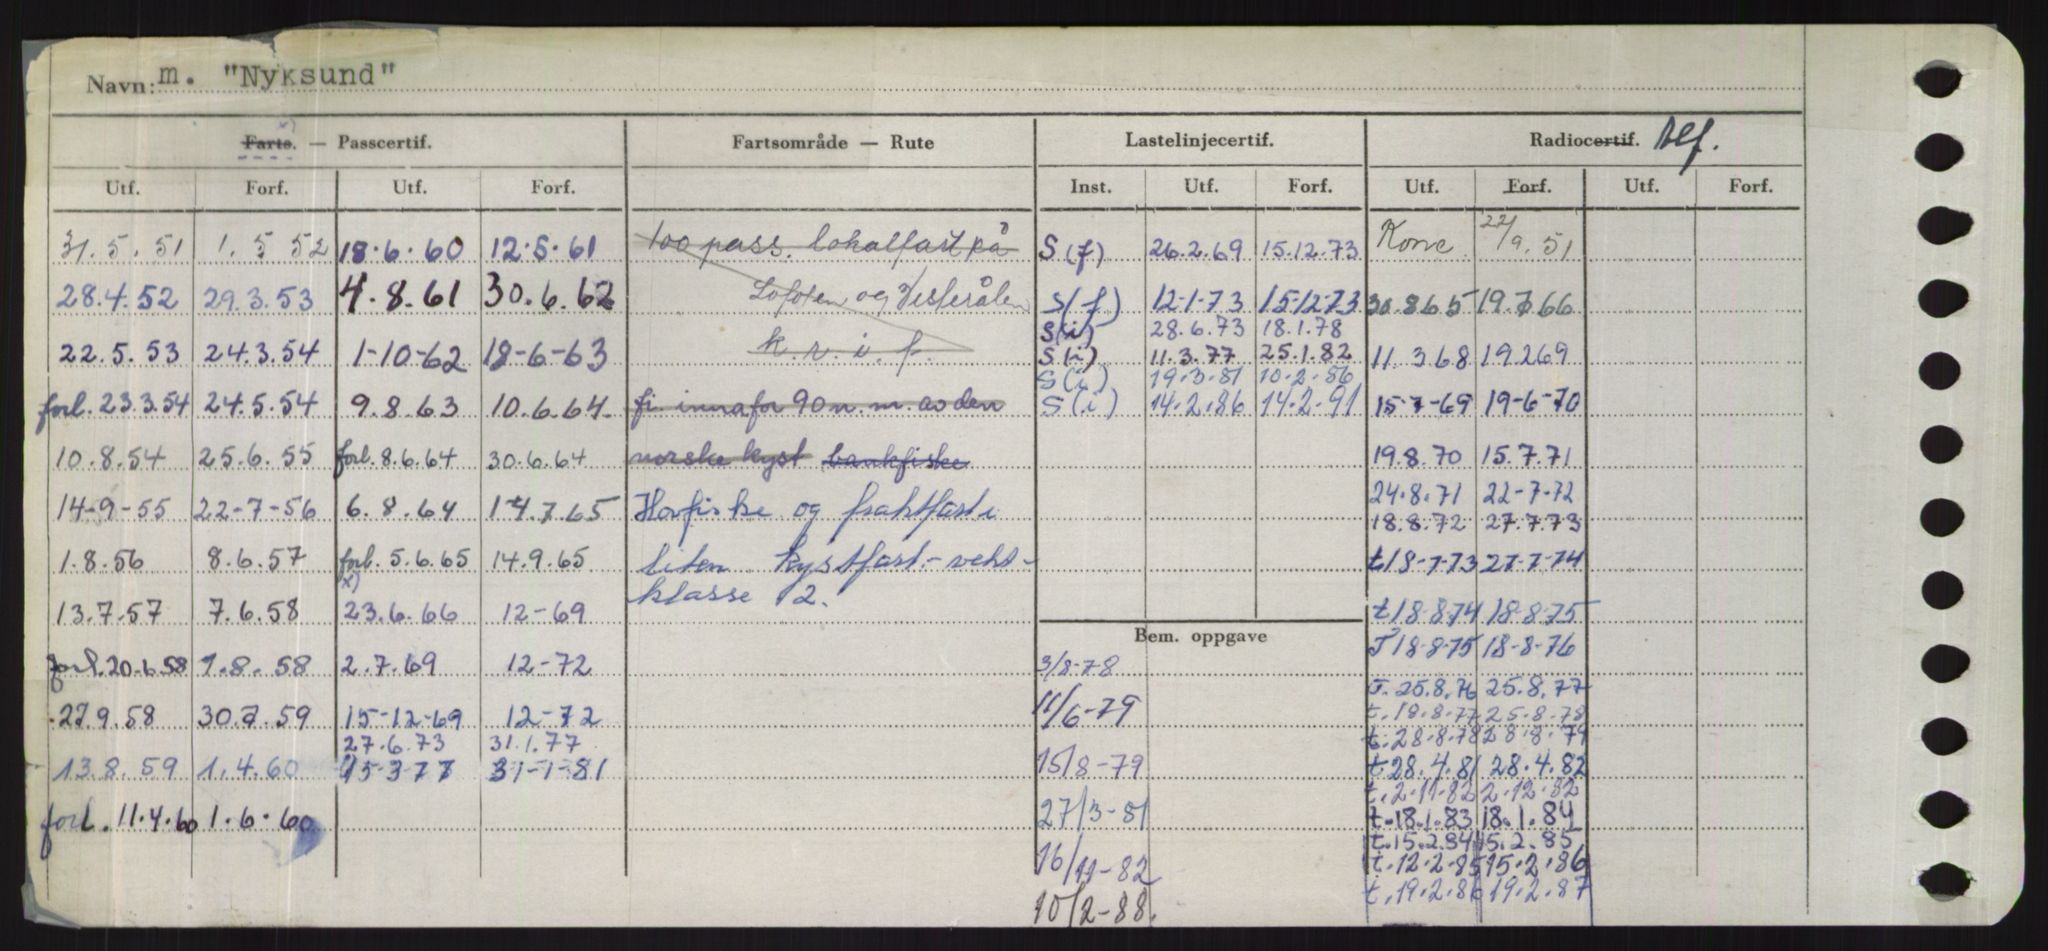 Navn: m. "Nyksund"
Farts. — Passcertif. Fartsområde — Rute Lastelinjecertif. Radiocertif. tlf.
Utf. Forf. Utf. Forf. Inst. Utf. Forf. Utf. Forf. Utf. Forf.
31.5.51 1.5 52 18.6.60 12.5.61 100 pass. lokalfart på S(f) 26.2.69 15.12.73 Konc 22/9.51
28.4.52 29.3.53 4.8.61 30.6.62 Lofoten og Vesterålen S(f) 12-1-73 15-12-73 30.8.65 19.7.66
S(i) 28.6.73 18.1.78
22.5.53 24.3.54 1-10-62 18-6-63 k.r.i.f. S(i) 11.3.77 25.1.82 11.3.68 19.2.69
S(i) 19.3.81 10.2.86
forl. 23.3.54 24.5.54 9.8.63 10.6.64. fi. innafor 90 n.m. av den S(i) 14.2.86 14.2.91 15-7-69 19-6-70
10.8.54 25.6.55 forl. 8.6.64 30.6.64 norske kyst bankfiske 19.8.70 15.7.71
24.8.71 22-7-72
14-9-55 22-7-56 6.8.64 14.7.65 Havfiske og fraktfart i 18.8.72 27.7.73
1.8.56 8.6.57 forl. 5.6.65 14.9.65 liten kystfart - vekt- t18-7-73 27-7-74
x)
13.7.57 7.6.58 23.6.66 12-69 klasse 2. t18-8-74 18-8-75
Bem. oppgave T18-8-75 18-8-76
forl. 20.6.58 1.8.58 2.7.69 12-72 3/8-78
T. 25.8.76 25.8.77
27.9.58 30.7.59 15-12-69 12-72 11/6-79 t. 18.8.77 25.8.78
27.6.73 31.1.77 t. 28.8.78 28.8.79
13.8.59 1.4.60 15-3-77 31-1-81 15/8-79 t. 28.4.81 28.4.82
t. 2.11.82 2.12.82
forl. 11.4.60 1.6.60 27/3-81 t. 18.1.83 18.1.84
t. 15.2.84 15.2.85
16/11-82 t. 12.2.85 15.2.86
t. 19.2.86 19.2.87
10/2-88.